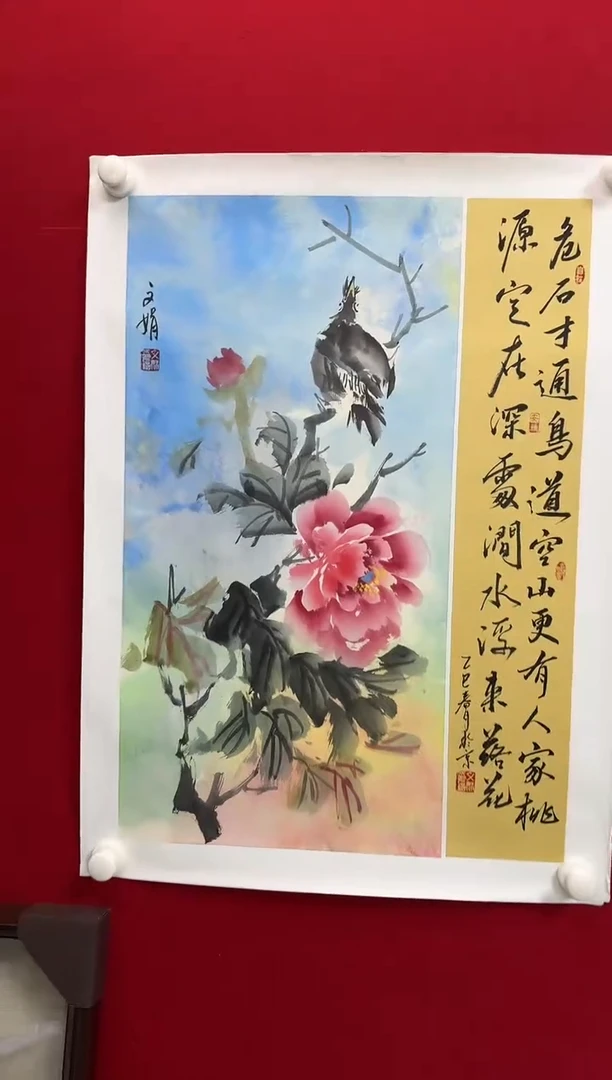 危石才通鸟道空山更有人家桃
源定在深处涧水浮来落花
乙巳春月於京
文娟